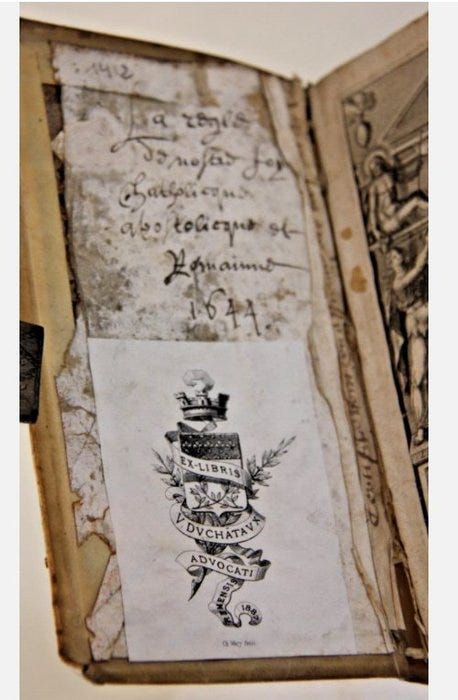 La regle
de nostre foy
Chatholicque
apostolicque et
Romainne
1644.
EX-LIBRIS
V. DVCHÂTAVX
ADVOCATI
REMENSIS